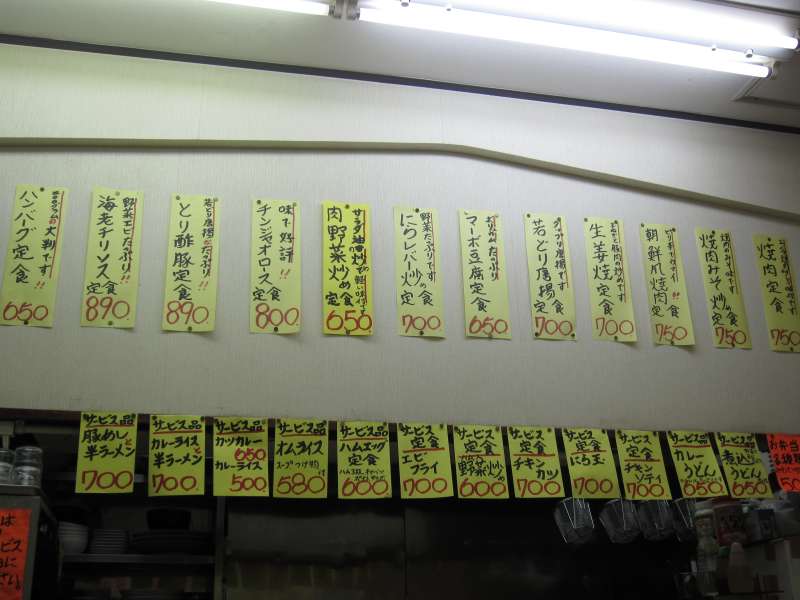 大判です
ハンバーグ定食
650
野菜エビたっぷり!!
海老チリソース定食
890
若どり唐揚がたっぷり!!
とり酢豚定食
890
味で好評!!
チンジャオロース定食
800
サラダ油の炒めで軽い味です
肉野菜炒め定食
650
野菜たっぷりです
にらレバー炒め定食
700
マーボ豆腐定食
650
若どり唐揚定食
700
生姜焼定食
700
朝鮮風焼肉定食
750
焼肉みそ炒め定食
750
焼肉定食
750
サービス品
豚めしと
半ラーメン
700
サービス品
カレーライスと
半ラーメン
700
サービス品
カツカレー
650
カレーライス
500
サービス品
オムライス
スープつけ
580
サービス品
ハムエッグ
定食
600
サービス
定食
エビ
フライ
700
サービス
定食
野菜炒め
600
サービス
定食
チキン
カツ
700
サービス
定食
にら玉
700
サービス
定食
チキン
ソテイ
700
サービス品
カレー
うどん
650
サービス品
煮込み
うどん
650
お弁当